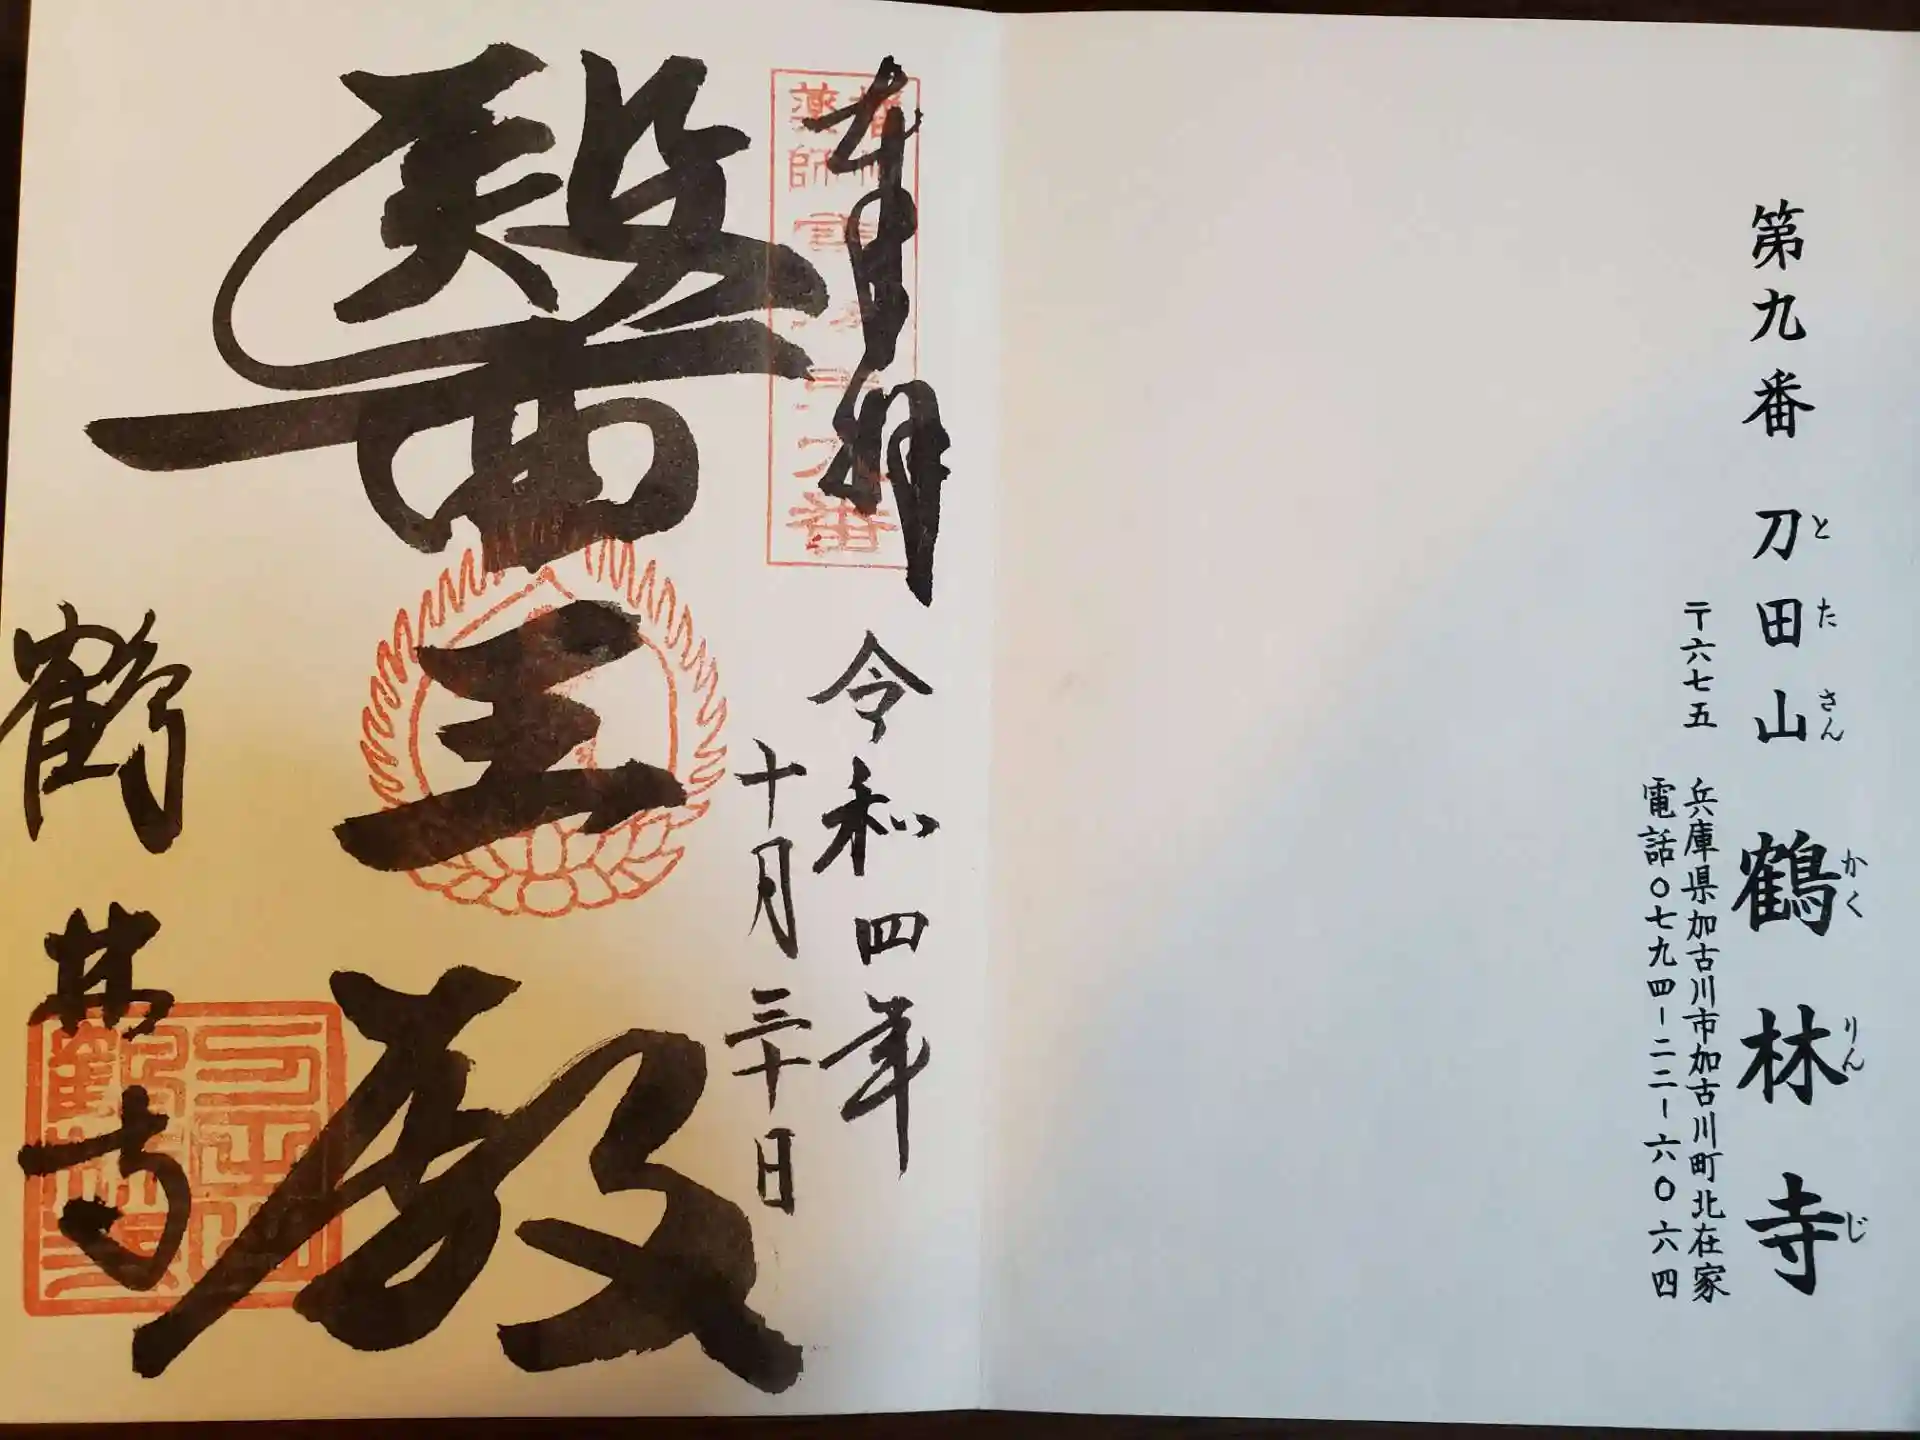 第九番 刀田山 鶴林寺
とたさん かくりんじ
〒六七五 兵庫県加古川市加古川町北在家
電話〇七九四-二二-六〇六四
奉拝 令和四年
十月三十日
醫王殿
鶴林寺
薬師
番